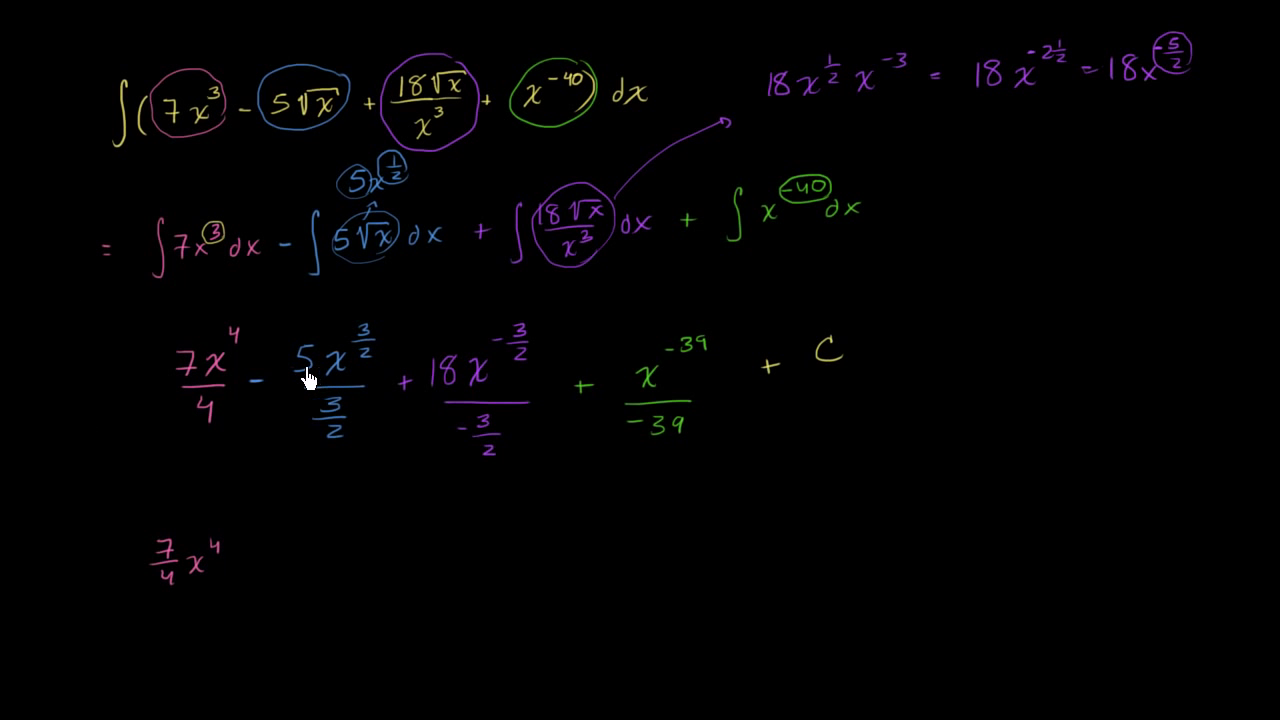 ∫(7x³ - 5√x + 18√x/x³ + x⁻⁴⁰) dx
18x^(1/2) x⁻³ = 18x^(-2 1/2) = 18x^(-5/2)
5x^(1/2)
= ∫7x³dx - ∫5√x dx + ∫18√x/x³ dx + ∫x⁻⁴⁰dx
7x⁴/4 - 5x^(3/2)/(3/2) + 18x^(-3/2)/(-3/2) + x⁻³⁹/-39 + C
7/4 x⁴